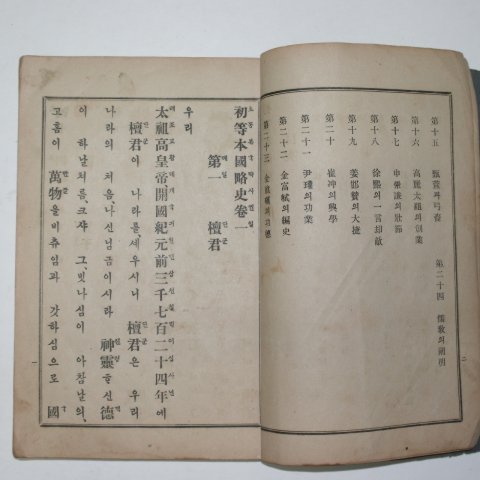 第十五 甄萱과弓裔
第十六 高麗太祖의創業
第十七 申崇謙의壯節
第十八 徐熙의一言却敵
第十九 姜邯贊의大捷
第二十 崔冲의興學
第二十一 尹瓘의功業
第二十二 金富軾의編史
第二十三 金
第二十四 儒敎의闡明
二
初等本國略史卷一
第一 檀君
우리
太祖高皇帝開國紀元前三千七百二十四年에
檀君이 나라를, 세우시니 檀君은 우리
나라의 처음, 나신님금이시라 神靈하신德
이 하날처름, 크샤 그, 빗나심이 아참날의,
고흠이 萬物을비츄임과 갓하심으로 國
一